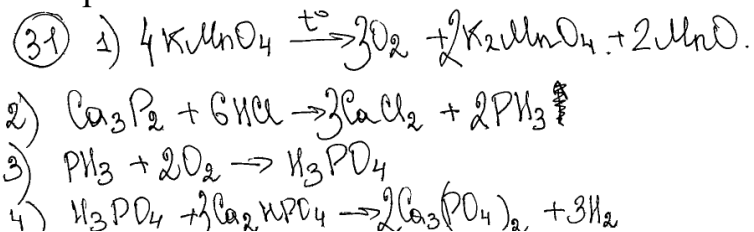 31 1) 4KMnO₄ —t°→ 3O₂ + 2K₂MnO₄ + 2MnO.
2) Ca₃P₂ + 6HCl → 3CaCl₂ + 2PH₃
3) PH₃ + 2O₂ → H₃PO₄
4) H₃PO₄ + 3Ca₂HPO₄ → 2Ca₃(PO₄)₂ + 3H₂